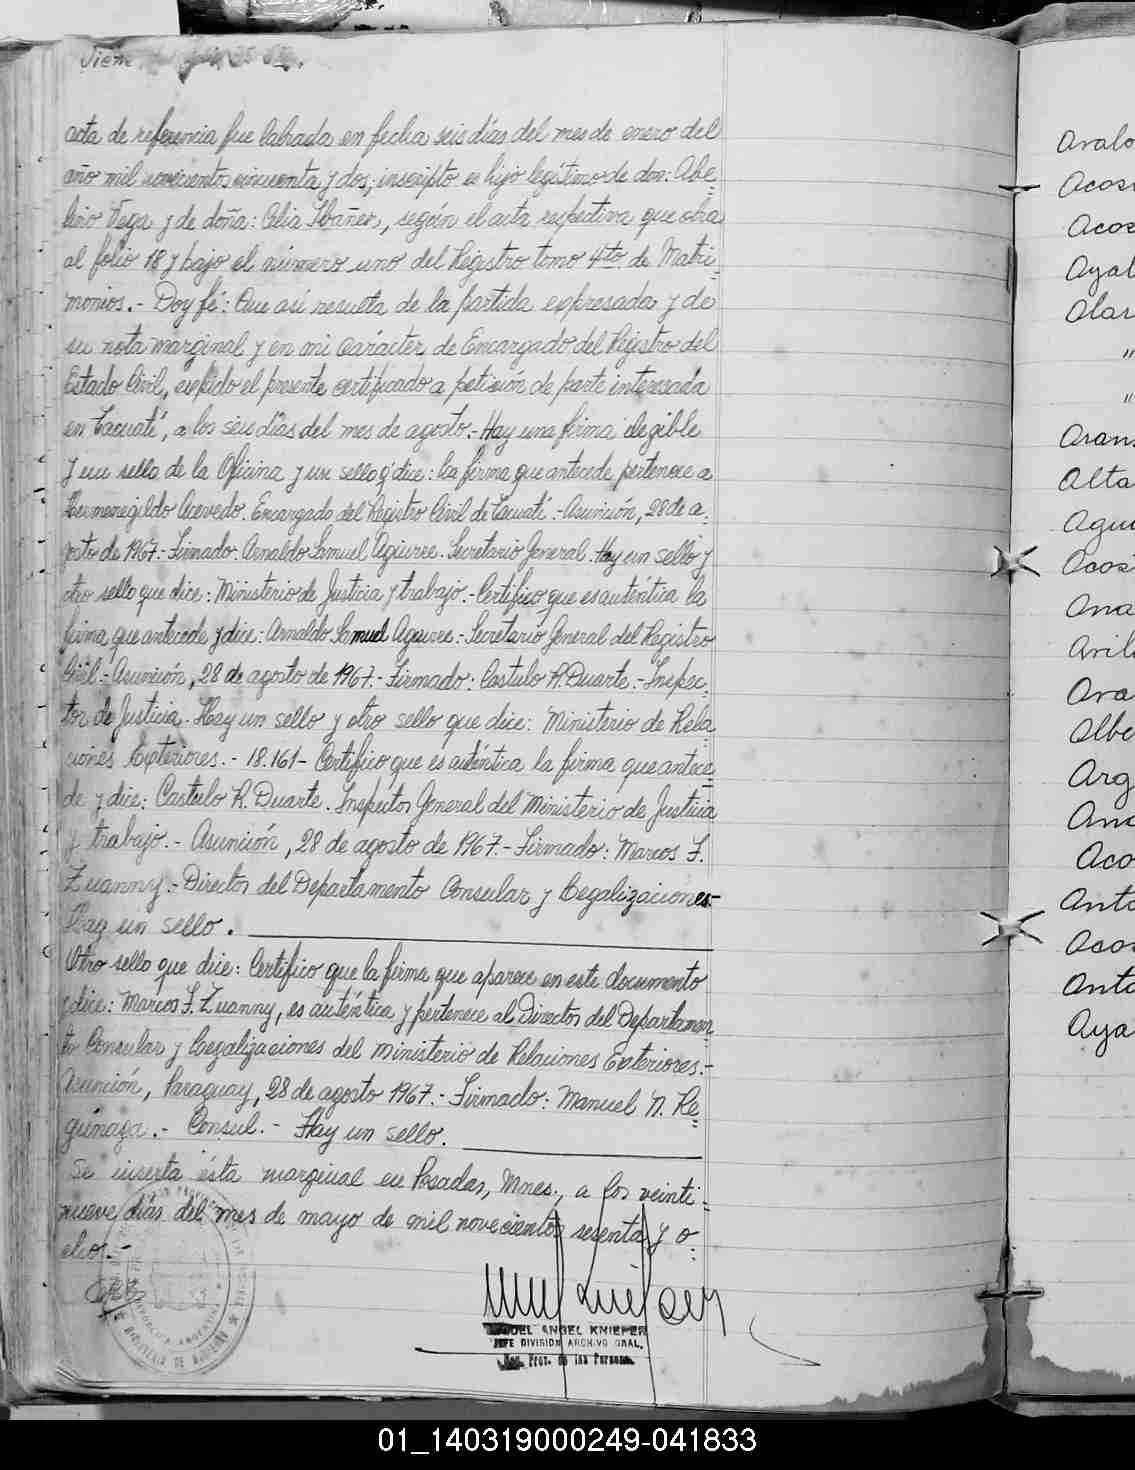 Viene
acta de referencia fue labrada en fecha seis días del mes de enero del
año mil novecientos cincuenta y dos; inscripto es hijo legítimo de don: Abe=
lino Vega y de doña: Celia Ibañez, según el acta respectiva que obra
al folio 18 y bajo el número uno del Registro tomo 4to de Matri=
monios.- Doy fé: Que así resulta de la partida expresada y de
su nota marginal y en mi carácter de Encargado del Registro del
Estado Civil, expido el presente certificado a petición de parte interesada
en Tacuatí, a los seis días del mes de agosto.- Hay una firma ilegible
y un sello de la Oficina y un sello q' dice: la firma que antecede pertenece a
Hermenegildo Acevedo. Encargado del Registro Civil de Tacuatí.- Asunción, 28 de a=
gosto de 1967.- Firmado: Arnaldo Samuel Aguirre. Secretario General. Hay un sello y
otro sello que dice: Ministerio de Justicia y trabajo.- Certifico que es auténtica la
firma que antecede y dice: Arnaldo Samuel Aguirre.- Secretario General del Registro
Civil.- Asunción, 28 de agosto de 1967.- Firmado: Castulo R. Duarte.- Inspec=
tor de Justicia. Hay un sello y otro sello que dice: Ministerio de Rela
ciones Exteriores.- 18.161- Certifico que es auténtica la firma que antece=
de y dice: Castulo R. Duarte. Inspector General del Ministerio de Justicia
y trabajo.- Asunción, 28 de agosto de 1967.- Firmado: Marcos F.
Zuanny.- Director del Departamento Consular y Legalizaciones.-
Hay un sello.
Otro sello que dice: Certifico que la firma que aparece en este documento
y dice: Marcos F. Zuanny, es auténtica y pertenece al Director del Departamen
to Consular y Legalizaciones del Ministerio de Relaciones Exteriores.-
Asunción, Paraguay, 28 de agosto 1967.- Firmado: Manuel N. Re=
guinaga.- Consul.- Hay un sello.
Se inserta ésta marginal en Posadas, Mnes., a los veinti=
nueve días del mes de mayo de mil novecientos sesenta y o=
cho.-
MIGUEL ANGEL KNIEPER
JEFE DIVISION ARCHIVO GRAL.
Reg. Prov. de las Personas
REPUBLICA ARGENTINA
MINISTERIO DE GOBIERNO
Avalo
Acos
Acos
Ayal
Olar
"
"
Aran
Alta
Agui
Acos
Ana
Avil
Ava
Albe
Arg
Ana
Aco
Anto
Acos
Anto
Aya
01_140319000249-041833